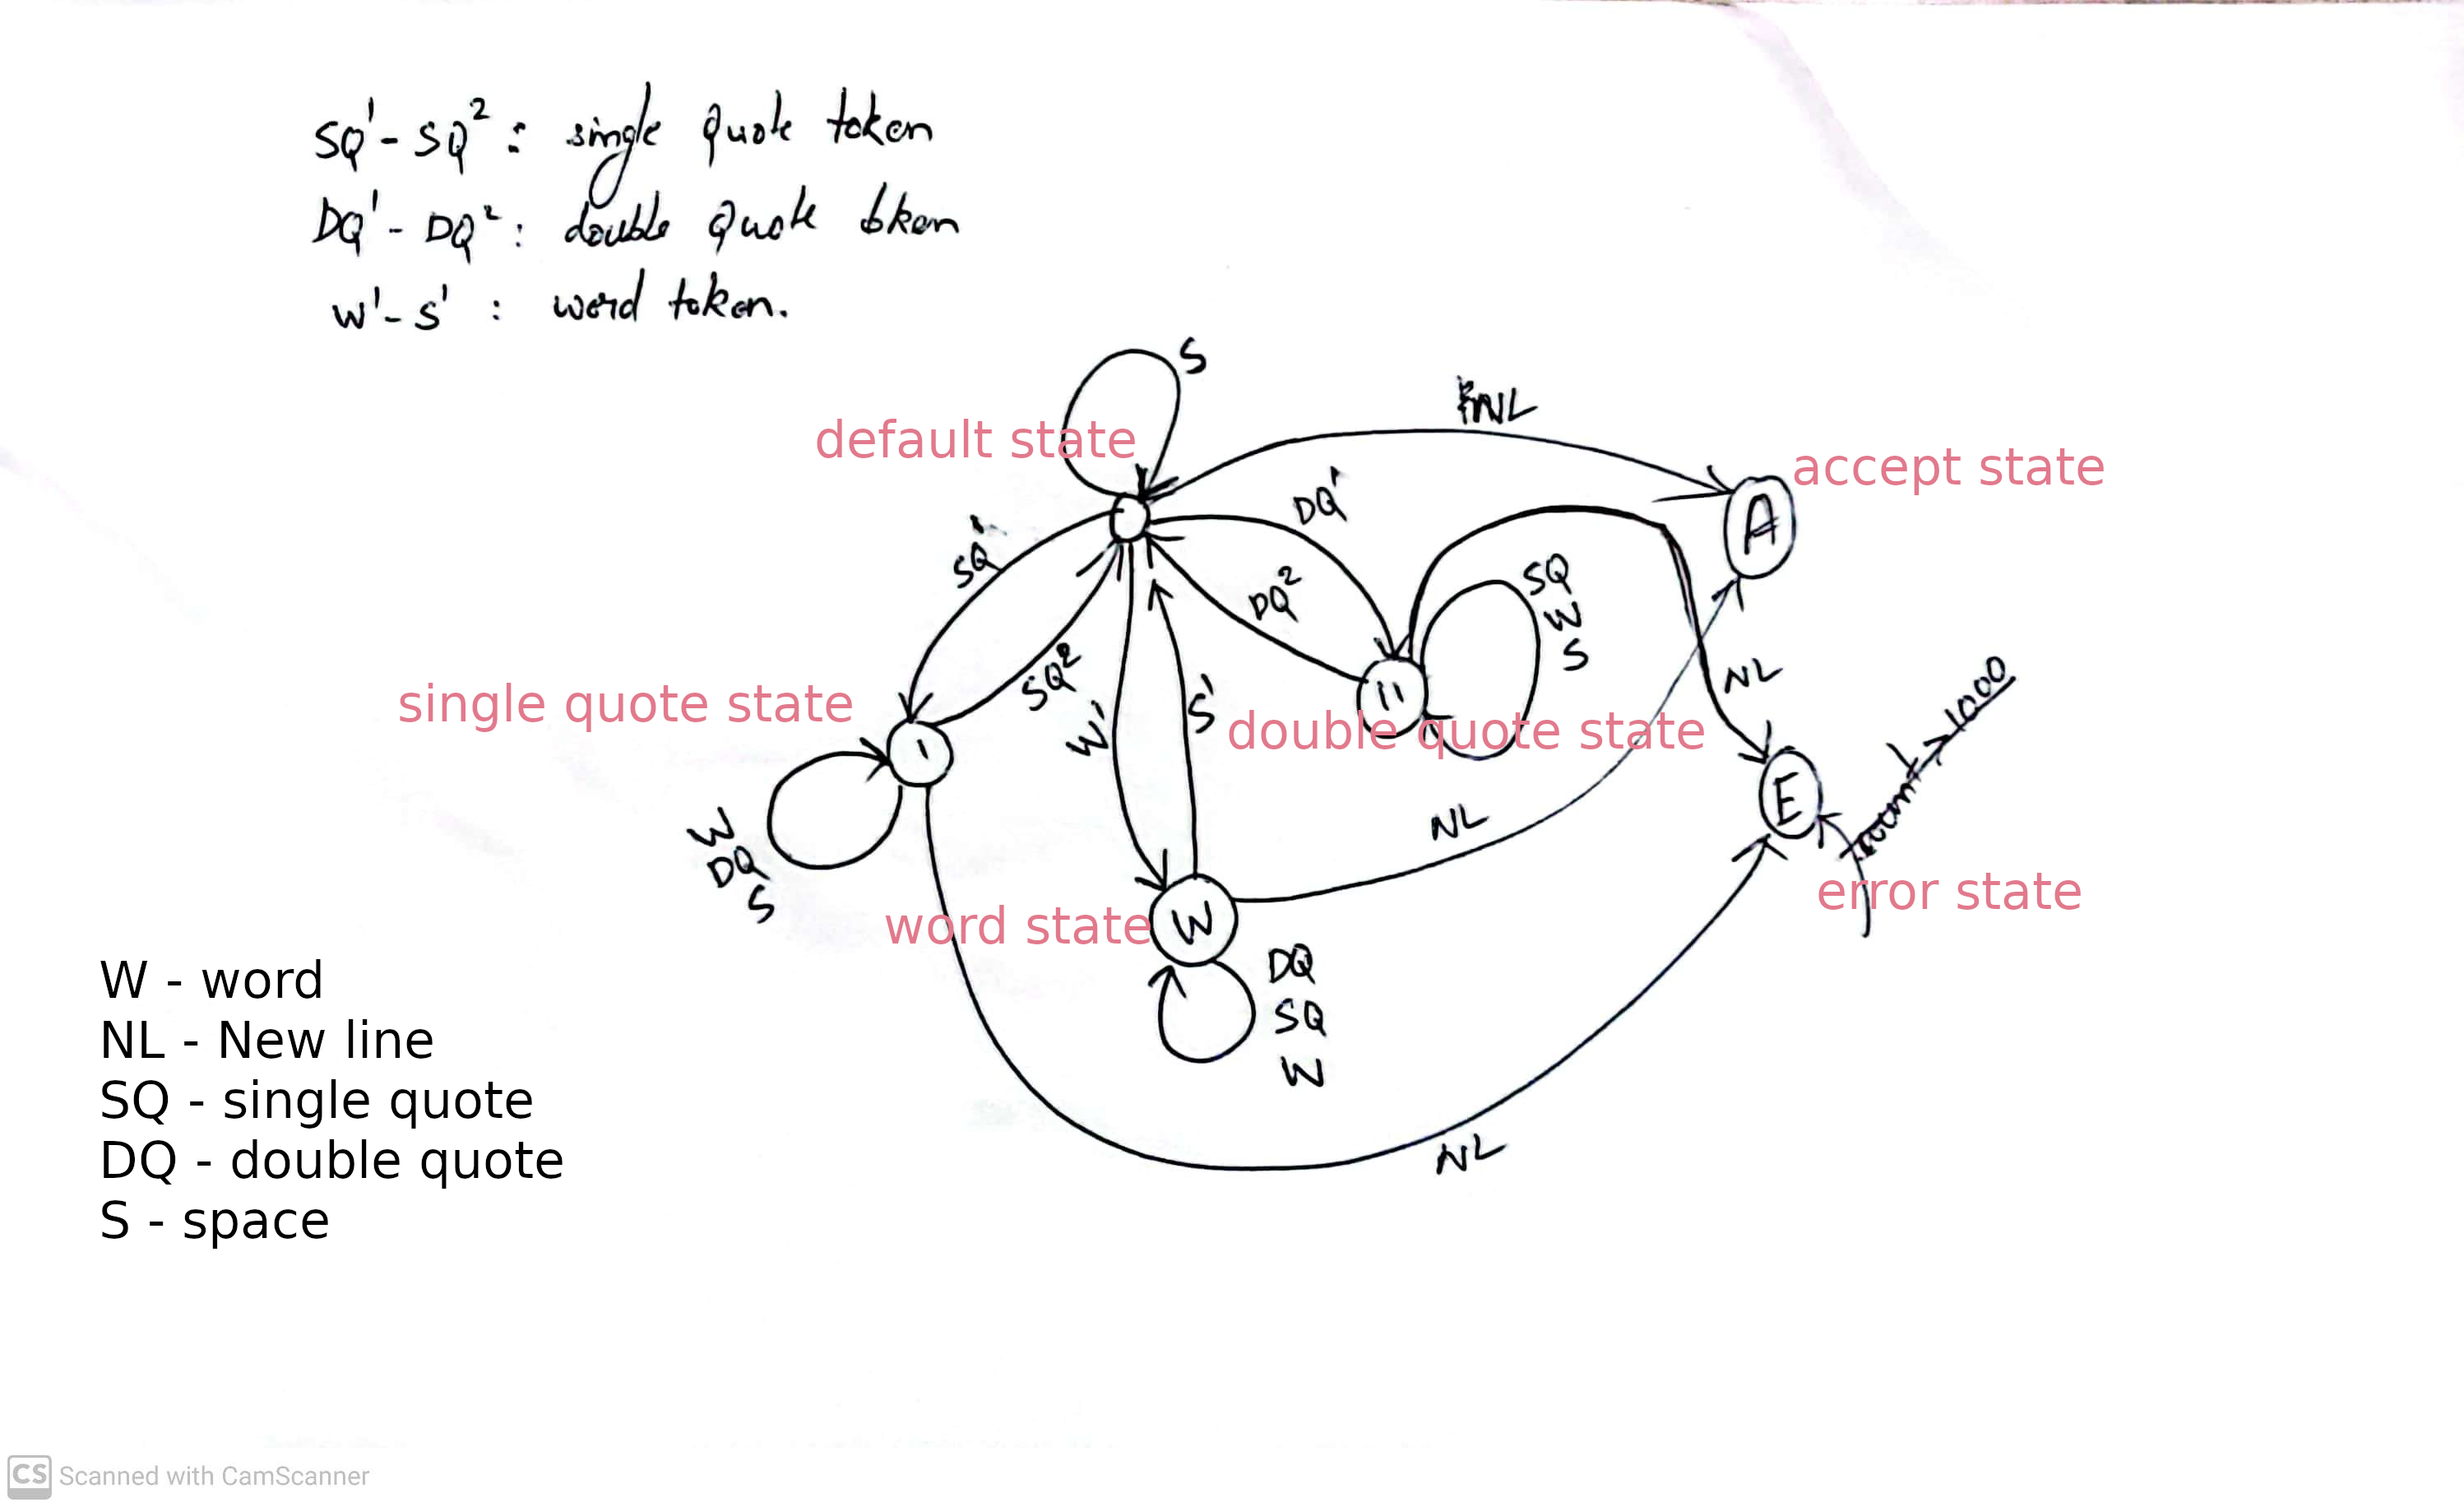 SQ¹ - SQ² : single quote token
DQ¹ - DQ² : double quote token
W¹ - S¹ : word token.
S
NL
default state
accept state
DQ¹
A
SQ¹
SQ
W
S
DQ²
SQ²
NL
1000
single quote state
W¹
S¹
"
double quote state
'
E
W
DQ
S
NL
error state
word state
W
DQ
SQ
W
W - word
NL - New line
SQ - single quote
DQ - double quote
S - space
NL
CS Scanned with CamScanner